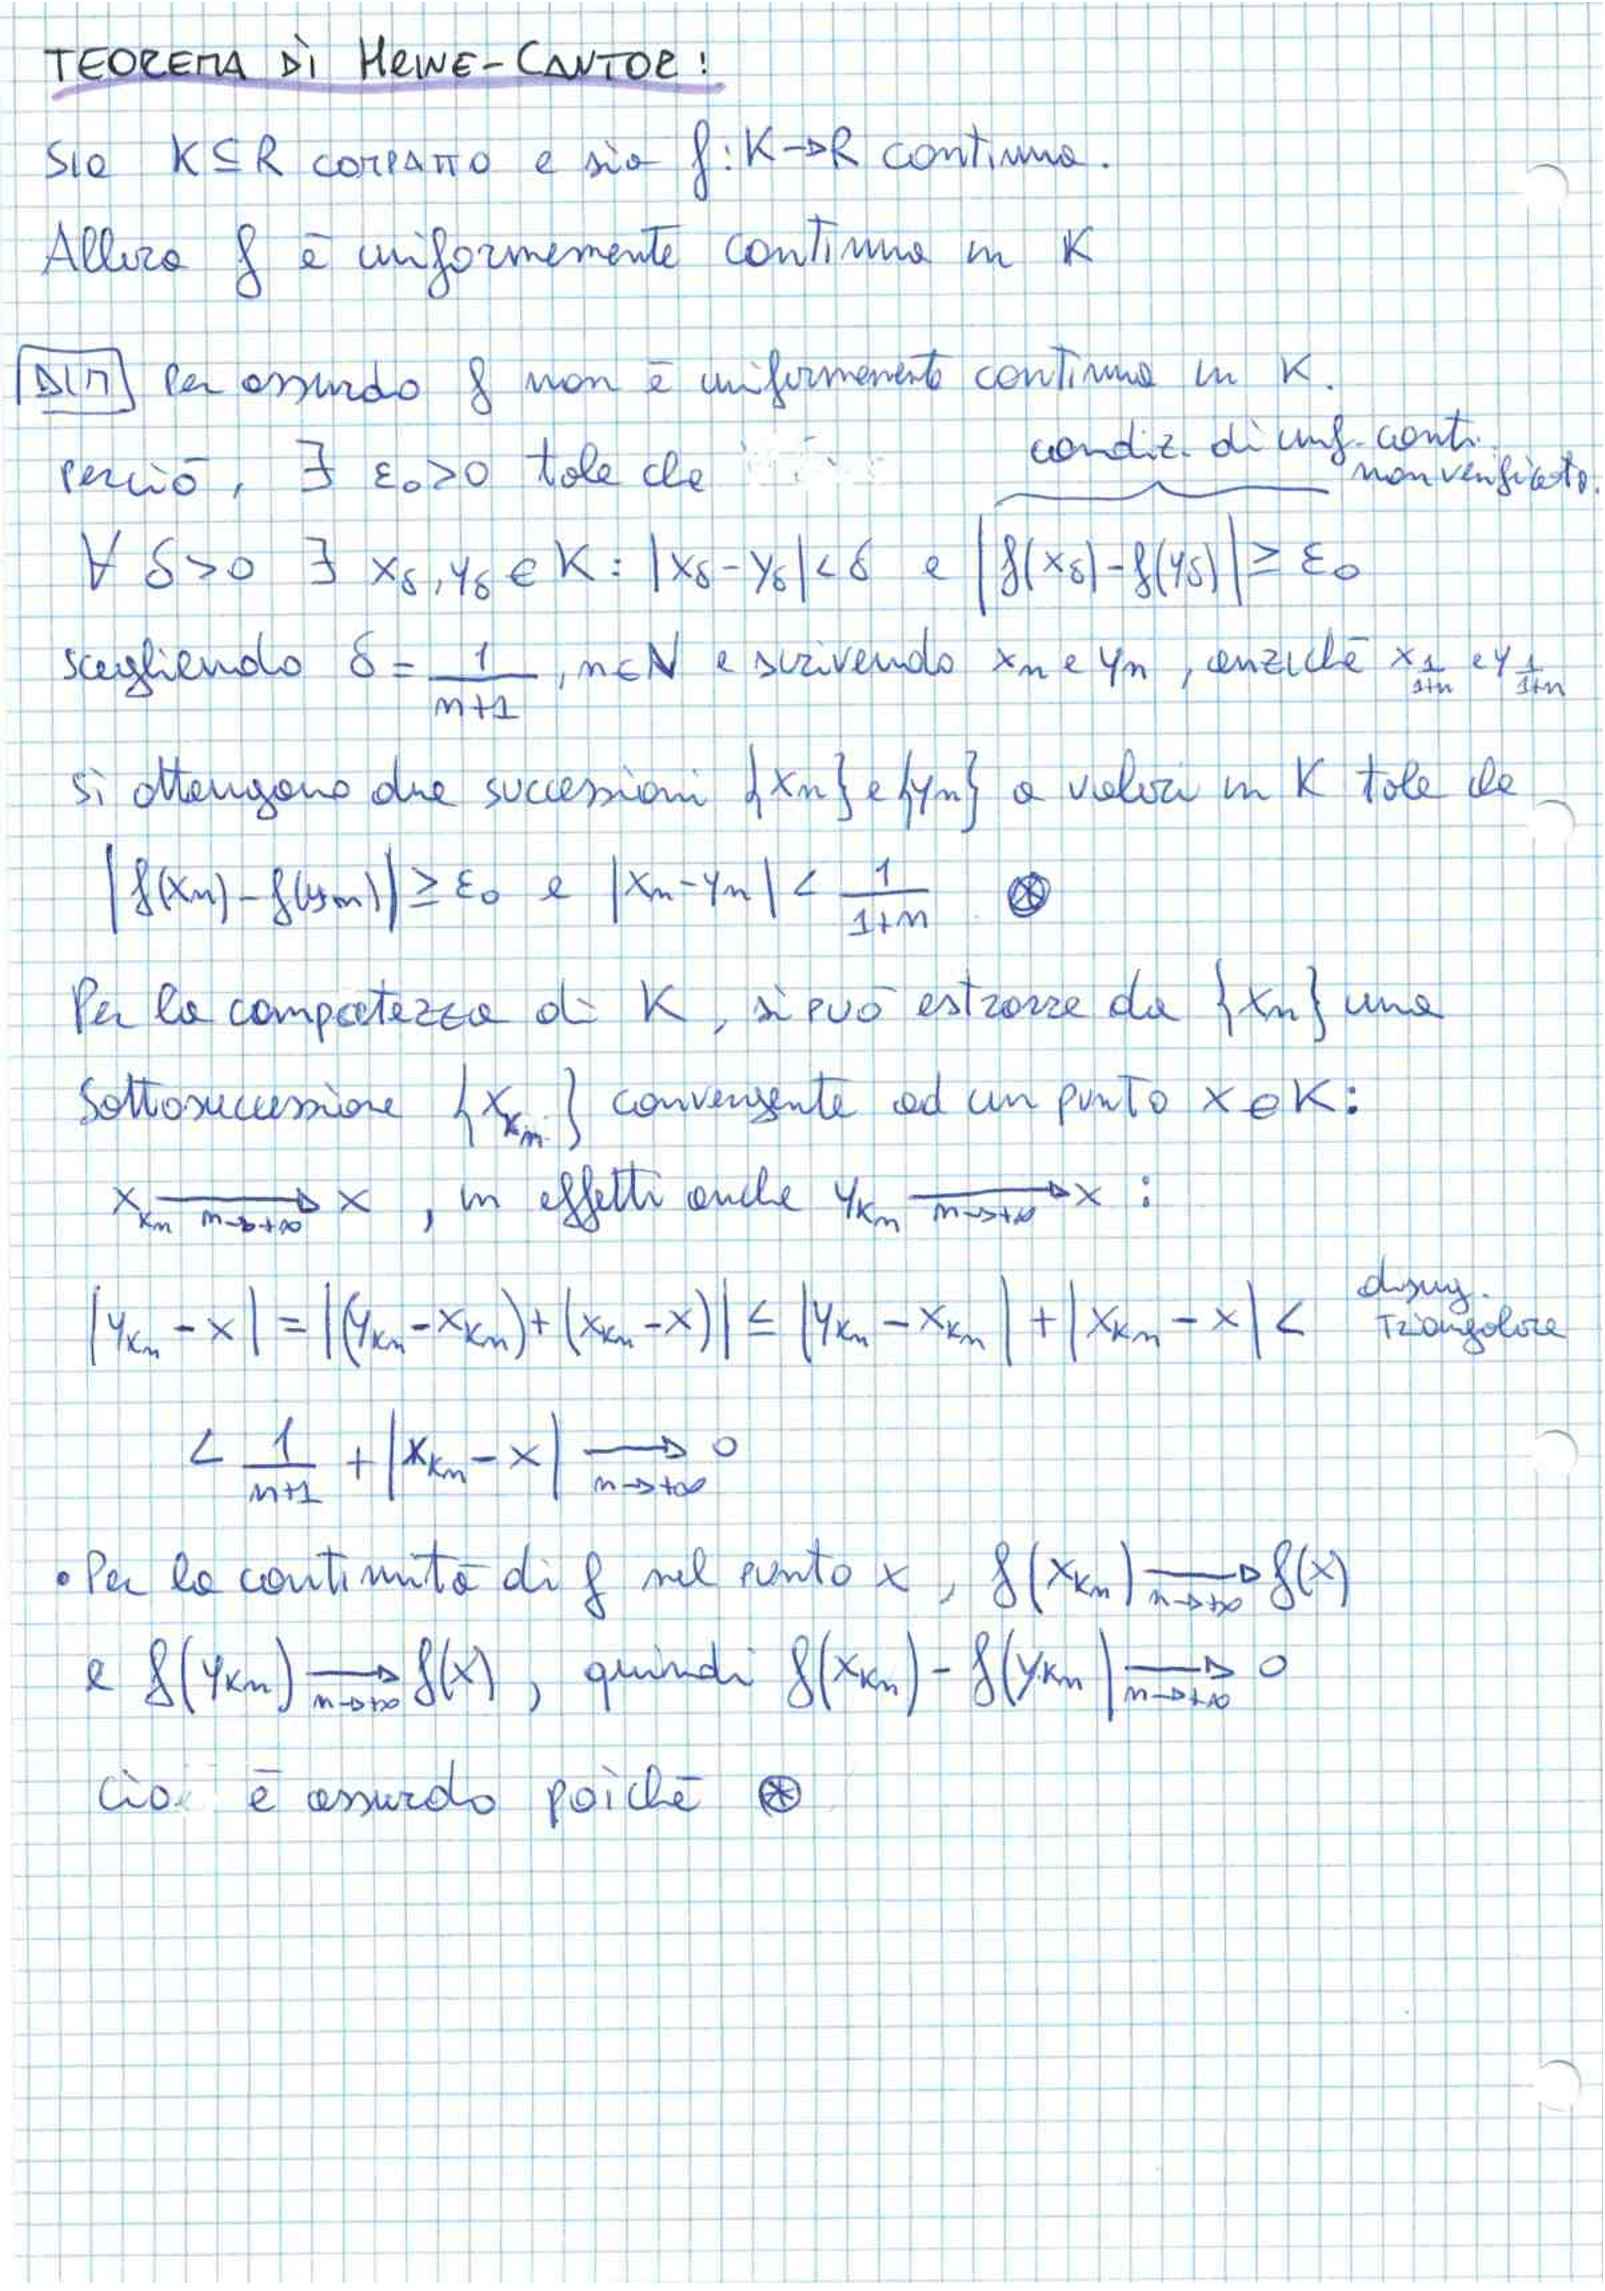 TEOREMA DÌ HEINE-CANTOR:
Sia K⊆R COMPATTO e sia f:K→R continua.
Allora f è uniformemente continua in K
DIM Per assurdo f non è uniformemente continua in K.
condiz. di unif. cont.
non verificata.
perciò, ∃ ε₀>0 tale che
∀ δ>0 ∃ x_δ, y_δ ∈ K: |x_δ - y_δ| < δ e |f(x_δ) - f(y_δ)| ≥ ε₀
scegliendo δ = 1/(n+1), n∈N e scrivendo x_n e y_n, anziché x_{1/(1+n)} e y_{1/(1+n)}
si ottengono due successioni {x_n} e {y_n} a valori in K tale che
|f(x_n) - f(y_n)| ≥ ε₀ e |x_n - y_n| < 1/(1+n) ⊛
Per la compattezza di K, si può estrarre da {x_n} una
sottosuccessione {x_{k_n}} convergente ad un punto x∈K:
x_{k_n} →_{n→+∞} x, in effetti anche y_{k_n} →_{n→+∞} x :
|y_{k_n} - x| = |(y_{k_n} - x_{k_n}) + (x_{k_n} - x)| ≤ |y_{k_n} - x_{k_n}| + |x_{k_n} - x| < disug. triangolare
< 1/(n+1) + |x_{k_n} - x| →_{n→+∞} 0
• Per la continuità di f nel punto x, f(x_{k_n}) →_{n→+∞} f(x)
e f(y_{k_n}) →_{n→+∞} f(x), quindi f(x_{k_n}) - f(y_{k_n}) →_{n→+∞} 0
Ciò è assurdo poiché ⊛